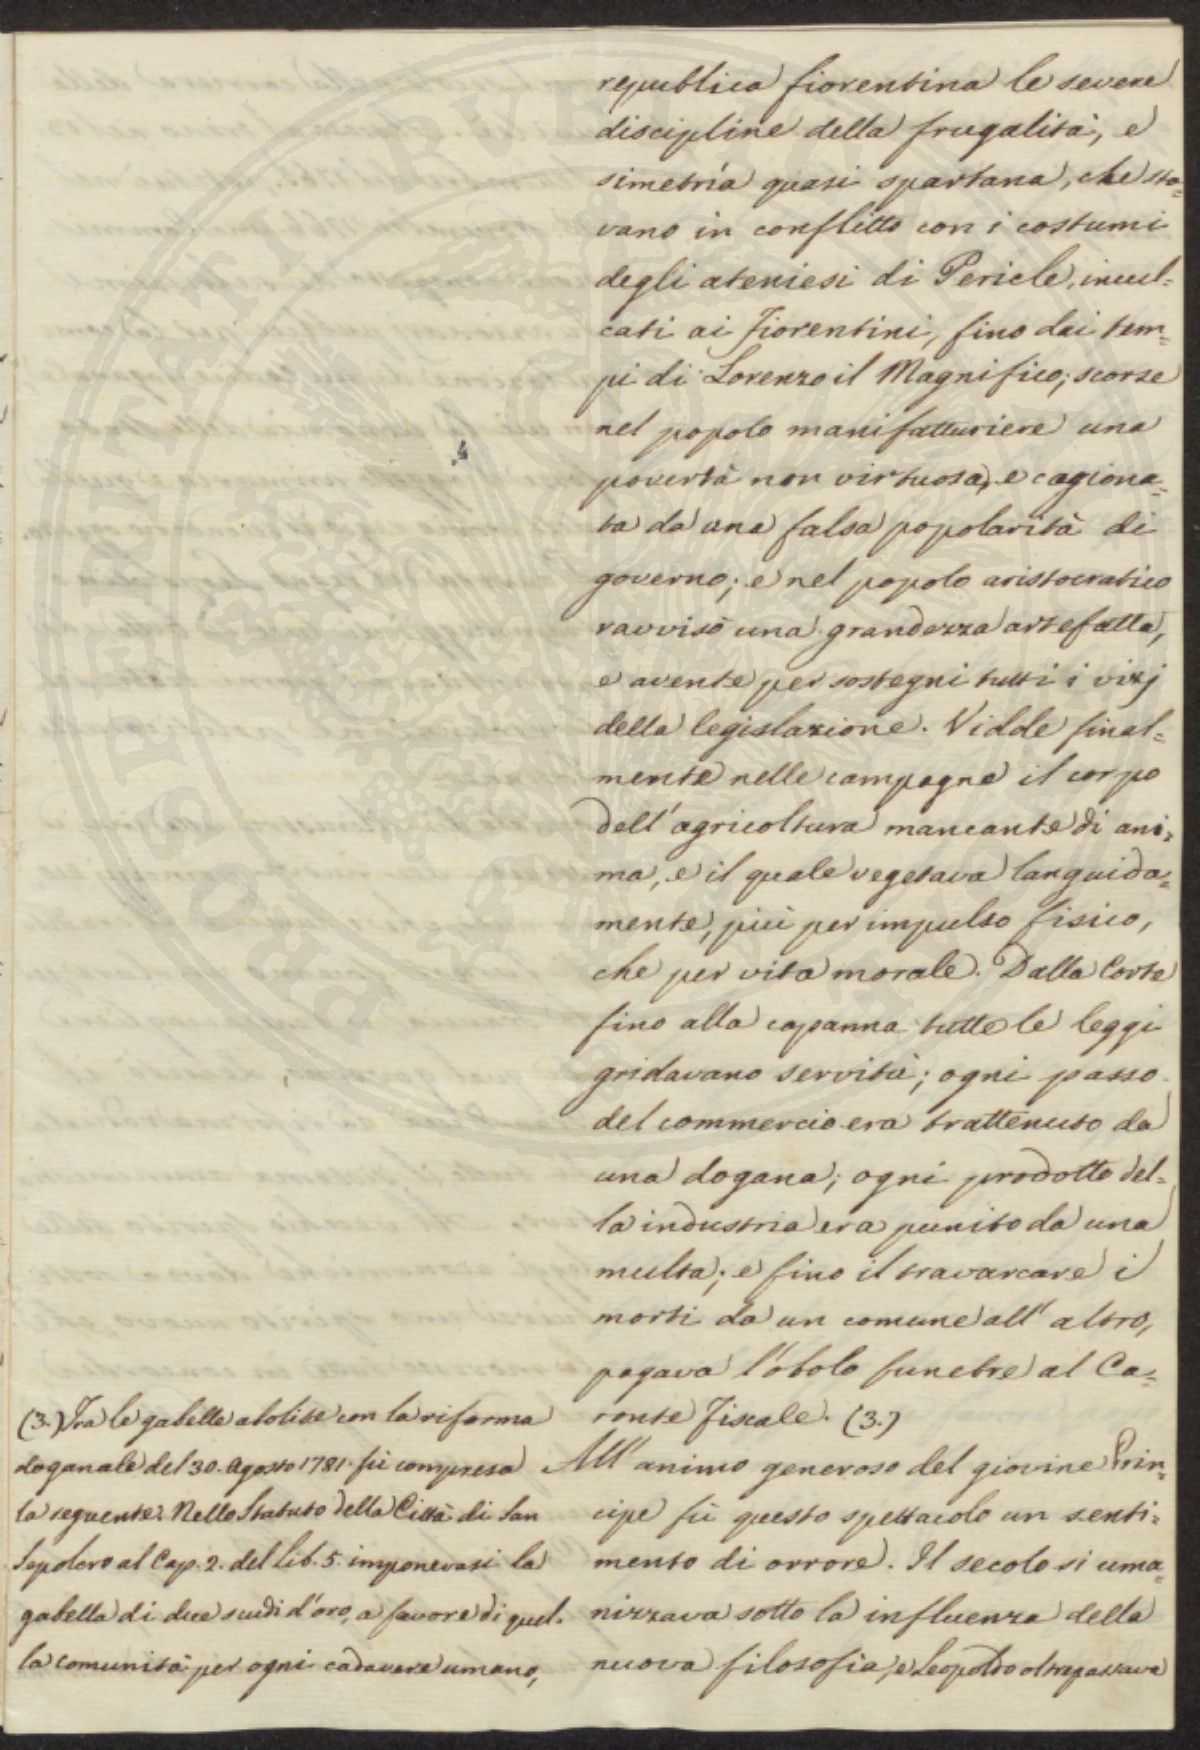 republica fiorentina le severe
discipline della frugalità, e
simetría quasi spartana, che sta=
vano in conflitto con i costumi
degli ateniesi di Pericle, incul=
cati ai Fiorentini, fino dai tem=
pi di Lorenzo il Magnifico; scorse
nel popolo manifatturiere una
povertà non virtuosa, e cagiona=
ta da una falsa popolarità di
governo; e nel popolo aristocratico
ravvisò una grandezza artefatta,
e avente per sostegni tutti i vizj
della legislazione. Vidde final=
mente nelle campagne il corpo
dell'agricoltura mancante di ani=
ma, e il quale vegetava languida=
mente, più per impulso fisico,
che per vita morale. Dalla Corte
fino alla capanna tutte le leggi
gridavano servitù; ogni passo
del commercio era trattenuto da
una dogana; ogni prodotto del=
la industria era punito da una
multa; e fino il travarcare i
morti da un comune all'altro,
pagava l'óbolo funebre al Ca=
ronte Fiscale. (3.)
All'animo generoso del giovine Prin=
cipe fù questo spettacolo un senti=
mento di orrore. Il secolo si uma=
nizzava sotto la influenza della
nuova filosofia, e Leopoldo oltrepassava
(3.) Tra le gabelle abolite con la riforma
doganale del 30. Agosto 1781. fù compresa
la seguente. Nello Statuto della Città di San
Sepolcro al Cap. 2. del Lib. 5. imponevasi la
gabella di due scudi d'oro, a favore di quel=
la comunità per ogni cadavere umano,